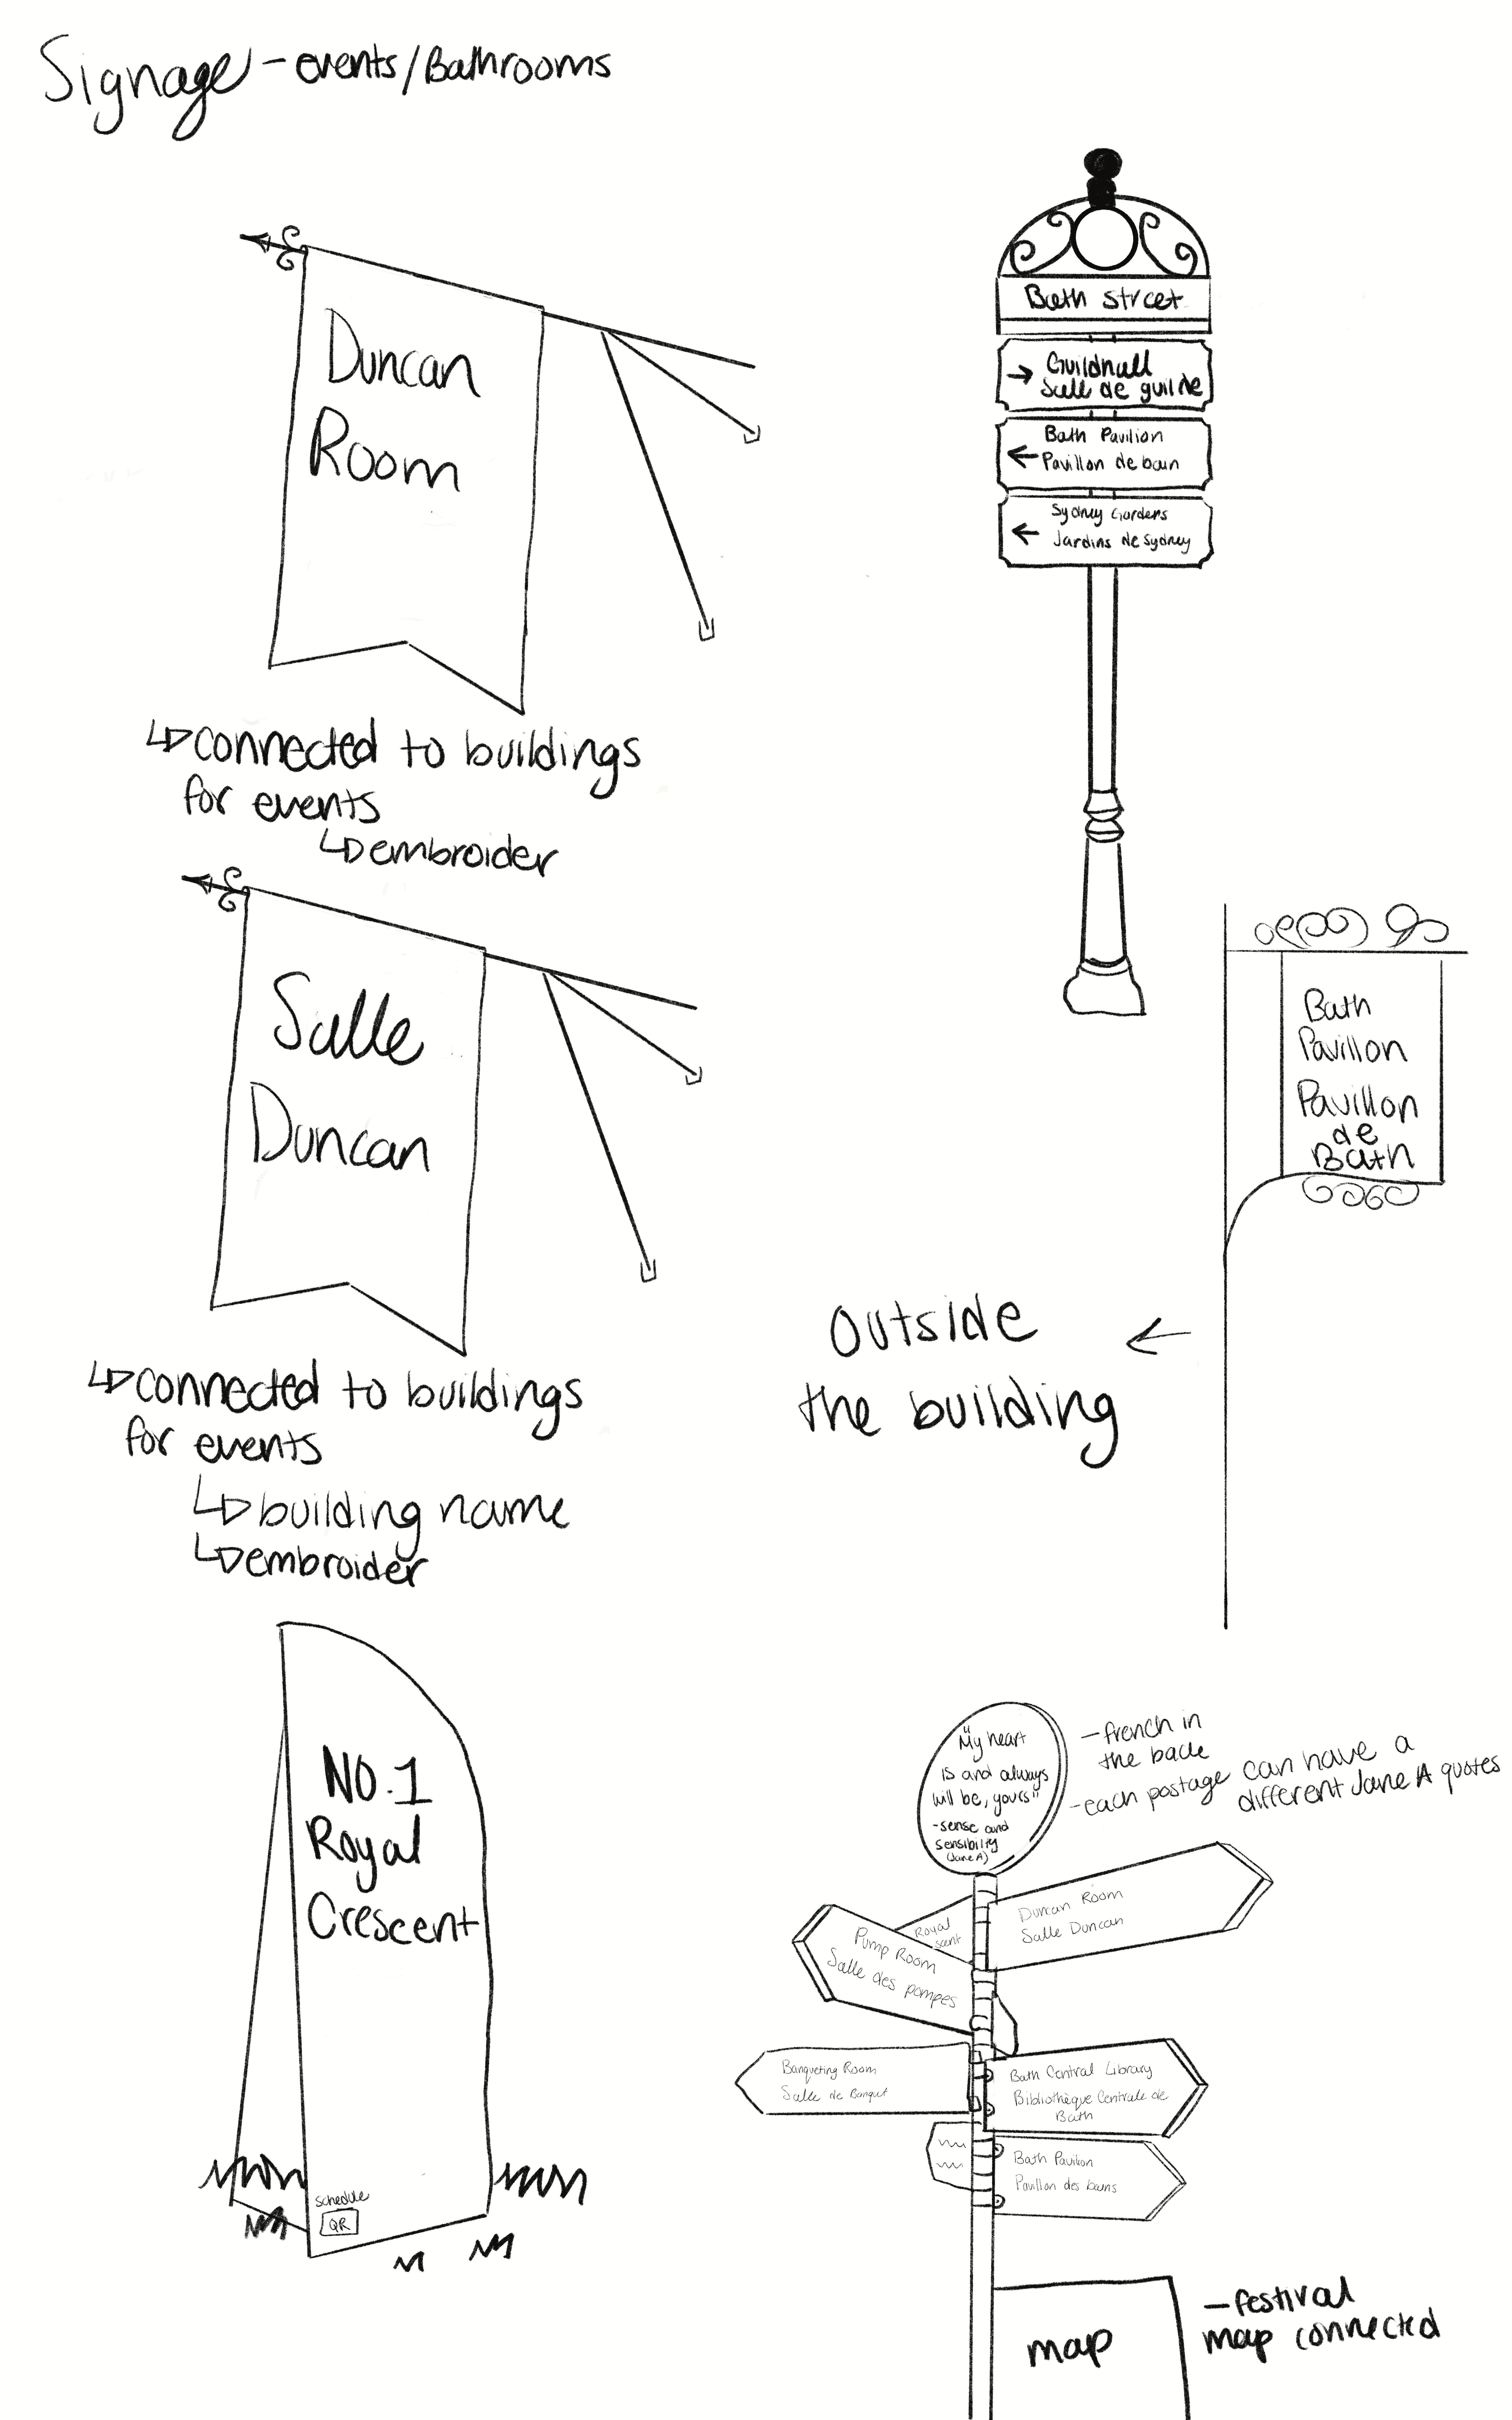 Signage - events/Bathrooms
Duncan
Room
connected to buildings
for events
embroider
Salle
Duncan
connected to buildings
for events
building name
embroider
NO.1
Royal
Crescent
schedule
QR
Bath street
Guildhall
Salle de guilde
Bath Pavilion
Pavillon de bain
Sydney Gardens
Jardins de Sydney
Bath
Pavillon
Pavillon
de
Bath
outside
the building
"My heart
is and always
will be, yours"
-sense and
sensibility
(Jane A)
- french in
the back
- each postage can have a
different Jane A quotes
Duncan Room
Salle Duncan
Royal
Pump Room
Salle des pompes
Banqueting Room
Salle de Banquet
Bath Central Library
Bibliothèque Centrale de
Bath
Bath Pavilion
Pavillon des bains
map
- festival
map connected